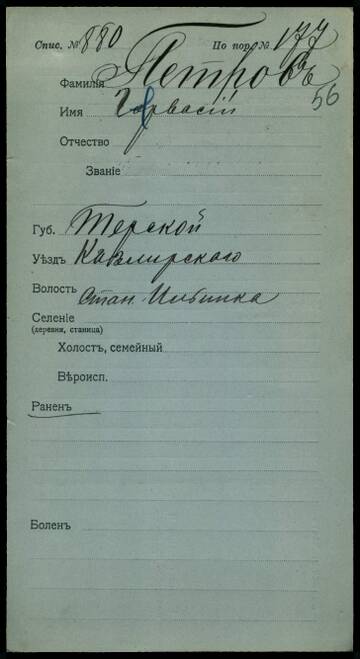 Спис. № 880 По пор. № 177
Фамилія Петровъ
56
Имя Гервасій
Отчество
Званіе
Губ. Терской
Уѣздъ Кизлярскаго
Волость Стан.
Селеніе
(деревня, станица)
Холостъ, семейный
Вѣроисп.
Раненъ
Боленъ